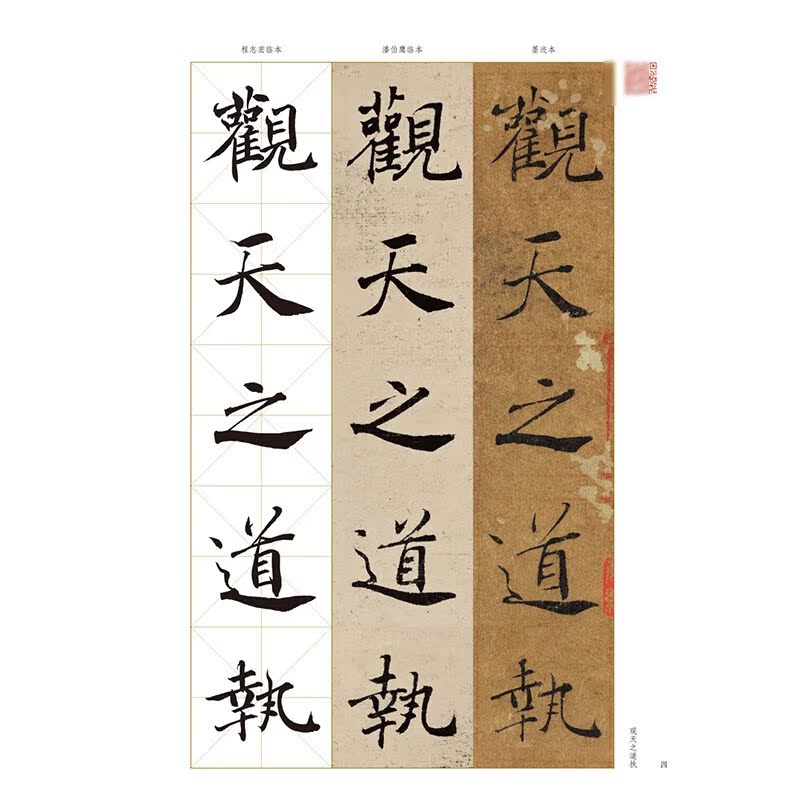 程志宏临本
潘伯鹰临本
墨迹本
觀天之道執
觀天之道執
觀天之道執
观天之道执
四